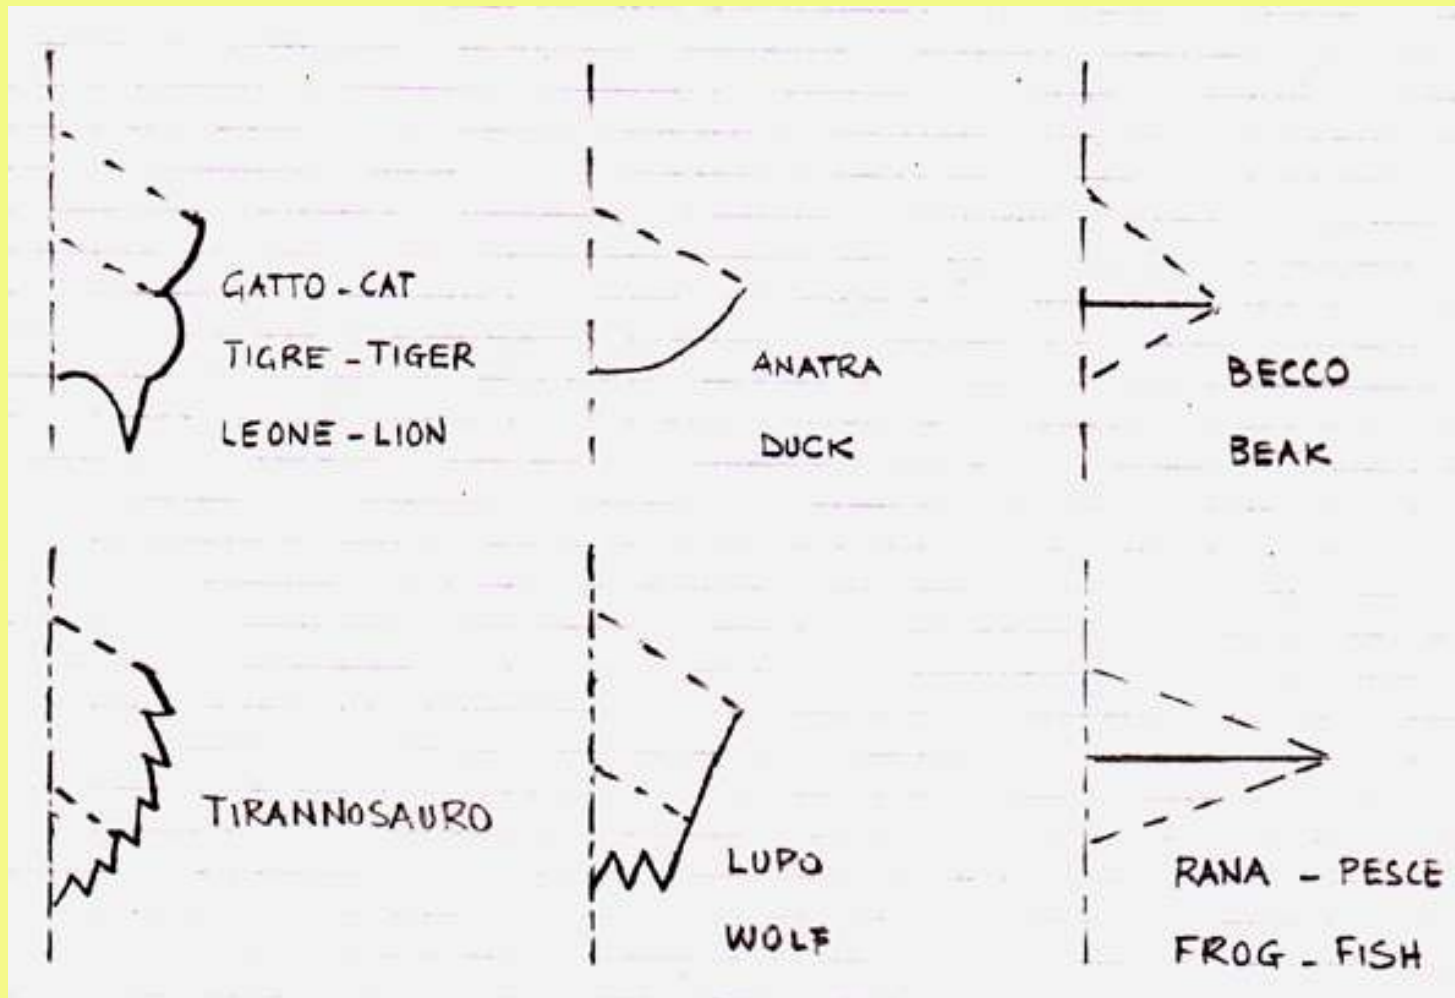 GATTO - CAT
TIGRE - TIGER
LEONE - LION
ANATRA
DUCK
BECCO
BEAK
TIRANNOSAURO
LUPO
WOLF
RANA - PESCE
FROG - FISH